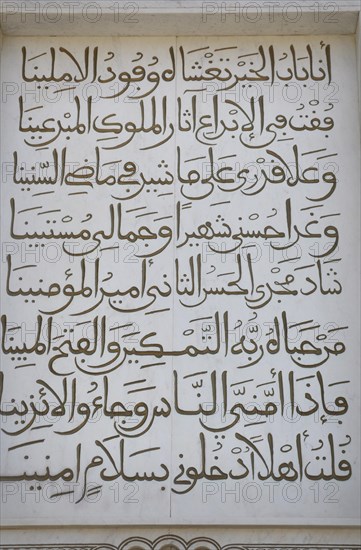 أنا باب الخير تغشاه وفود الآملينا
فقت في الإبداع آثار الملوك المبدعينا
وعلا قدري على ما شيد في ماضي السنينا
وغدا حسني شهيرا وجمالي مستبينا
شاد مجدي الحسن الثاني أمير المؤمنينا
مرحباه ربه التمكين والفتح المبينا
فإذا أمني الناس وجاءوا زائرينا
قلت أهلا أدخلوني بسلام آمنينا